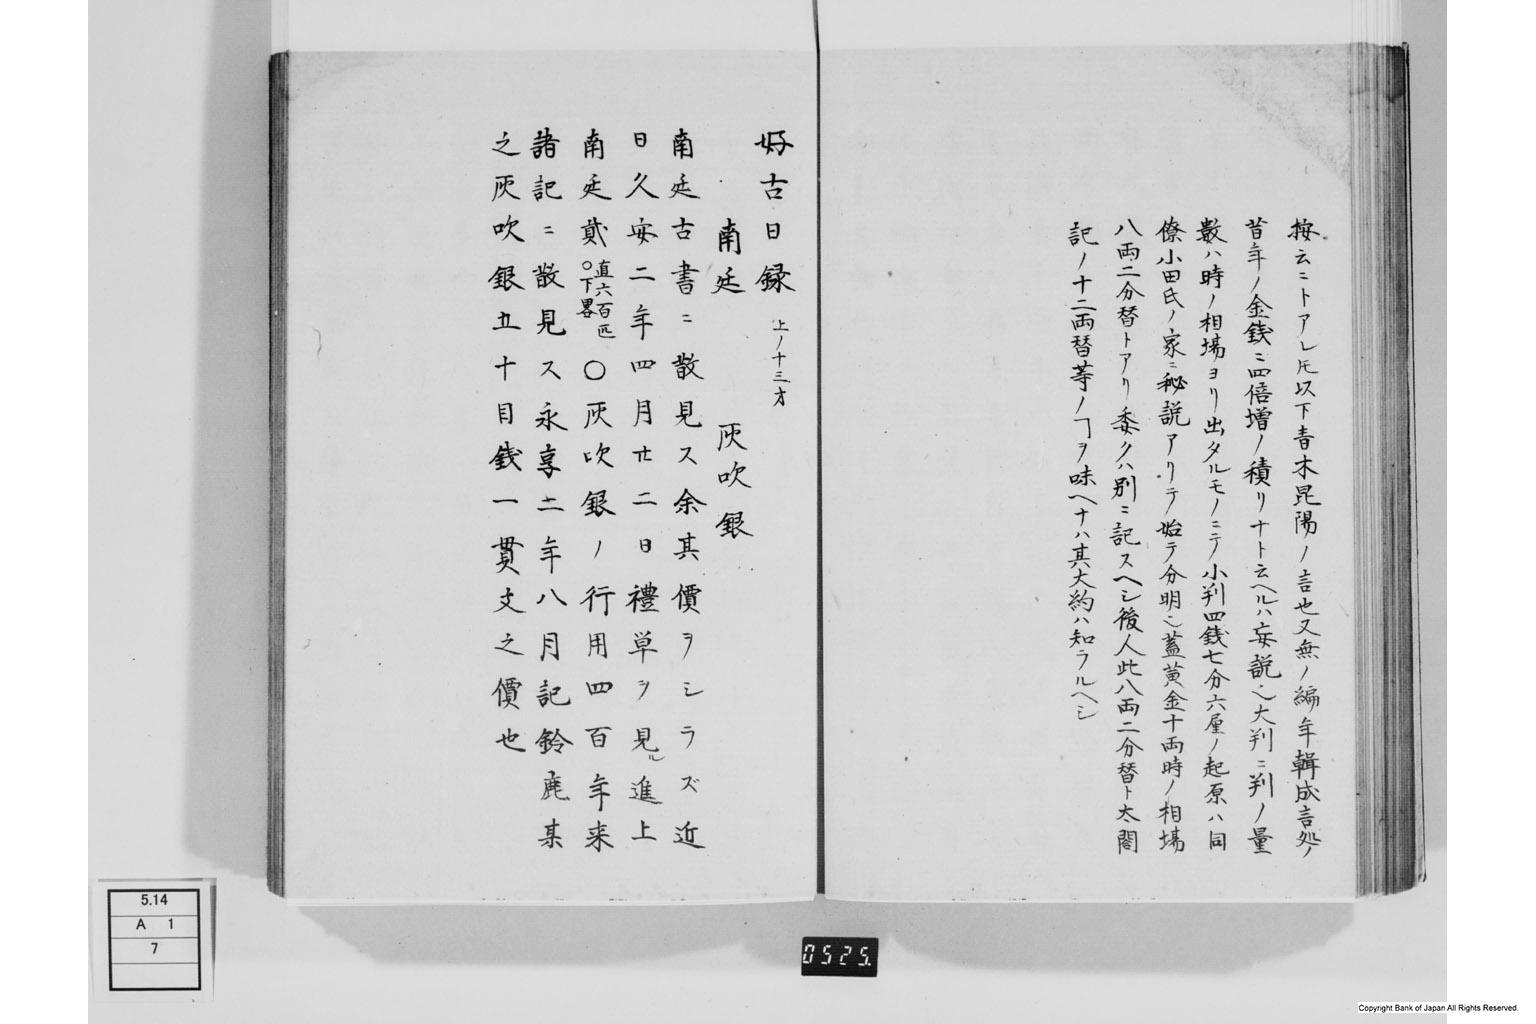 按云ニトアレ𪜈以下青木昆陽ノ言也又無ノ編年輯成言処ノ
昔年ノ金銭ニ四倍増ノ積リナト云ヘルハ妄説也大判ニ判ノ量
数ハ時ノ相場ヨリ出タルモノニテ小判四銭七分六厘ノ起原ハ同
僚小田氏ノ家ニ秘説アリテ始テ分明也蓋黄金十両時ノ相場
八両二分替トアリ委クハ別ニ記スヘシ後人此八両二分替ト太閤
記ノ十二両替等ノヿヲ味ヘナハ其大約ハ知ラルヘシ
好古日録 上ノ十三才
南廷 灰吹銀
南廷古書ニ散見ス余其價ヲシラズ近
日久安二年四月廿二日禮草ヲ見ル進上
南廷貳 直六百匹 〇下畧 〇灰吹銀ノ行用四百年来
諸記ニ散見ス永享十二年八月記鈴鹿某
之灰吹銀五十目銭一貫文之價也
5.14
A 1
7
0525.
Copyright Bank of Japan All Rights Reserved.